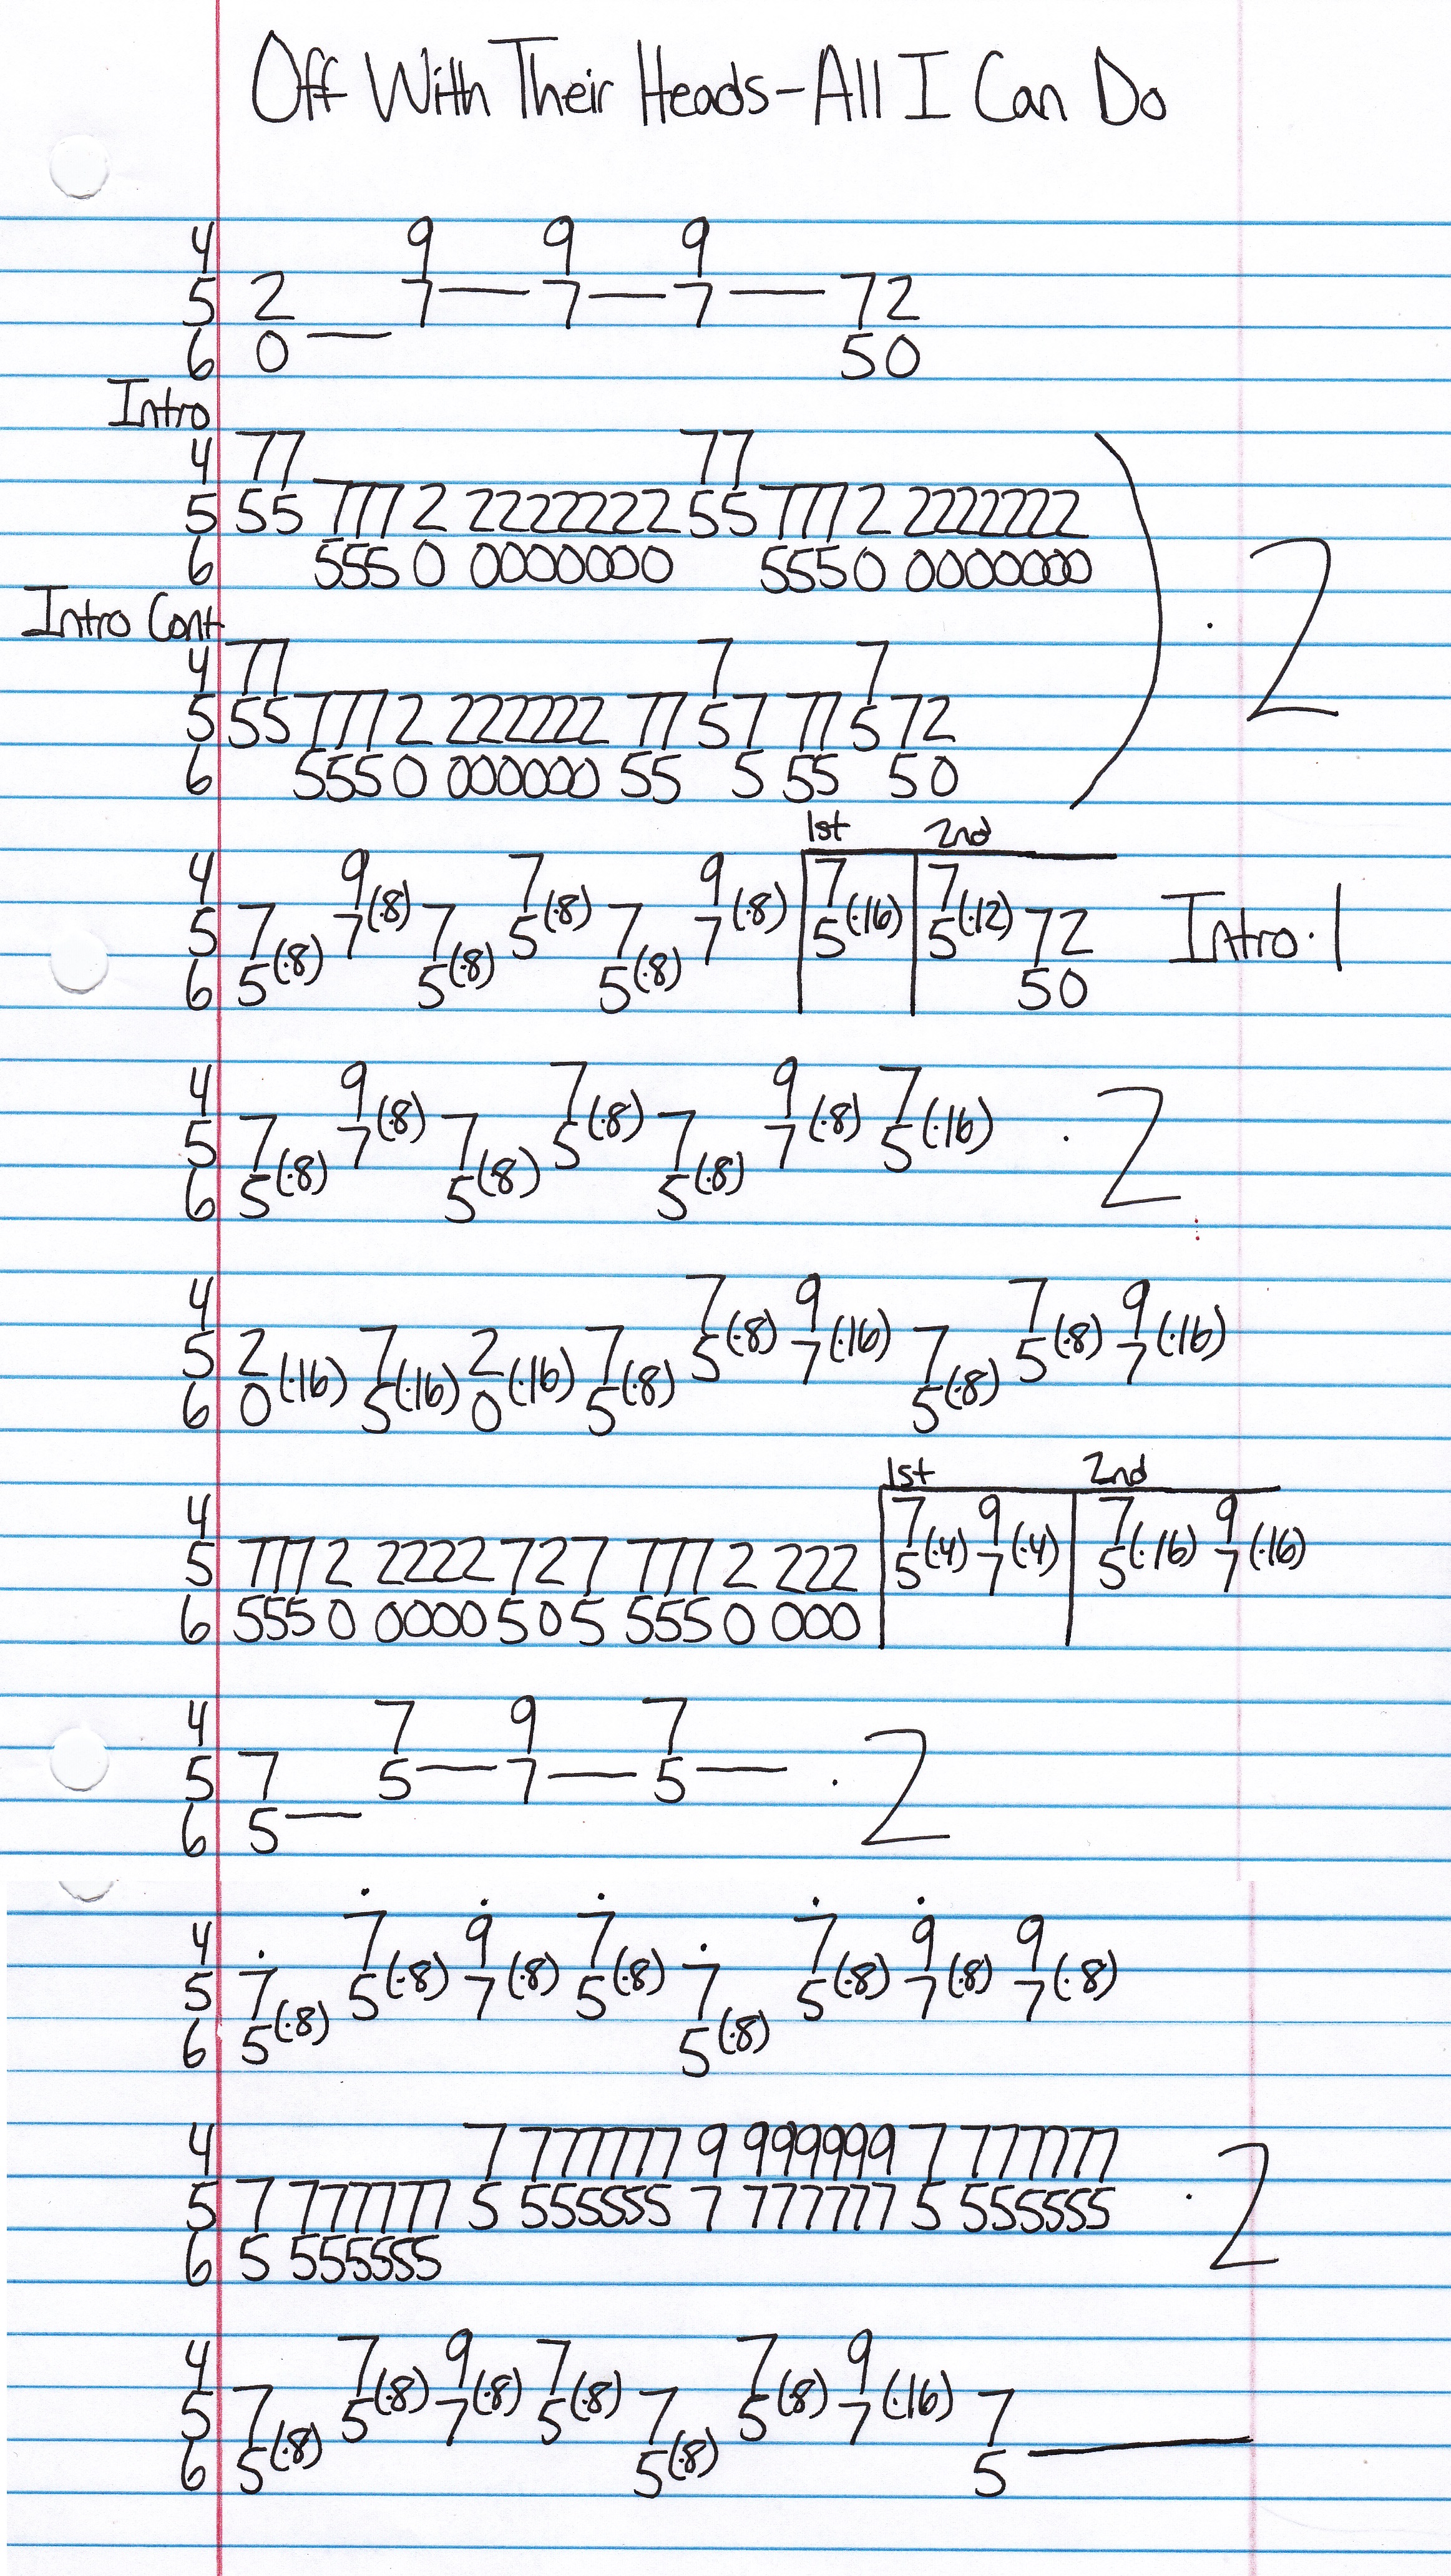 Off With Their Heads-All I Can Do
4 9 9 9
5 2 7— 7— 7— 72
6 0— 50
Intro
4 77 77
5 55 777 2 2222222 55 777 2 222222
6 555 0 0000000 5550 0000000
Intro Cont
4 77 7 7
5 55 777 2 222222 77 57 77 5 72
6 5550 000000 55 5 55 50
·2
1st 2nd
4 9(·8) 7(·8) 9(·8) 7(·16) 7(·12)
5 7 7 7 5 7 7 5 5 72 Intro·1
6 5(·8) 5(·8) 5(·8) 50
4 9(·8) 7(·8) 9(·8) 7(·16)
5 7 7 7 5 7 7 5 ·2
6 5(·8) 5(·8) 5(·8)
4 7(·8) 9(·16) 7(·8) 9(·16)
5 2 7 2 7 5 7 7 5 7
6 0(·16) 5(·16) 0(·16) 5(·8) 5(·8)
1st 2nd
4 7(·4) 9(·4) 7(·16) 9(·16)
5 777 2 2222 727 777 2 222 5 7 5 7
6 555 0 0000 505 555 0 000
4 7 9 7
5 7 5— 7— 5— ·2
6 5—
4 7(·8) 9(·8) 7(·8) 7(·8) 9(·8) 9(·8)
5 7 5 7 5 7 5 7 7
6 5(·8) 5(·8)
4 7 777777 9 999999 7 77777
5 7 777777 5 555555 7 777777 5 555555 ·2
6 5 555555
4 7(·8) 9(·8) 7(·8) 7(·8) 9(·16)
5 7 5 7 5 7 5 7 7
6 5(·8) 5(·8) 5—